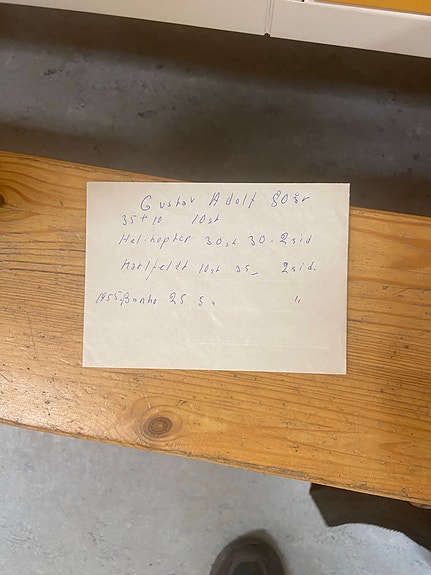 Gustav Adolf 80 år
35 + 10 10st
Helikopter 30st 30.- 2sid
Karlfeldt 10st 35,- 2sid.
25 5 "    "